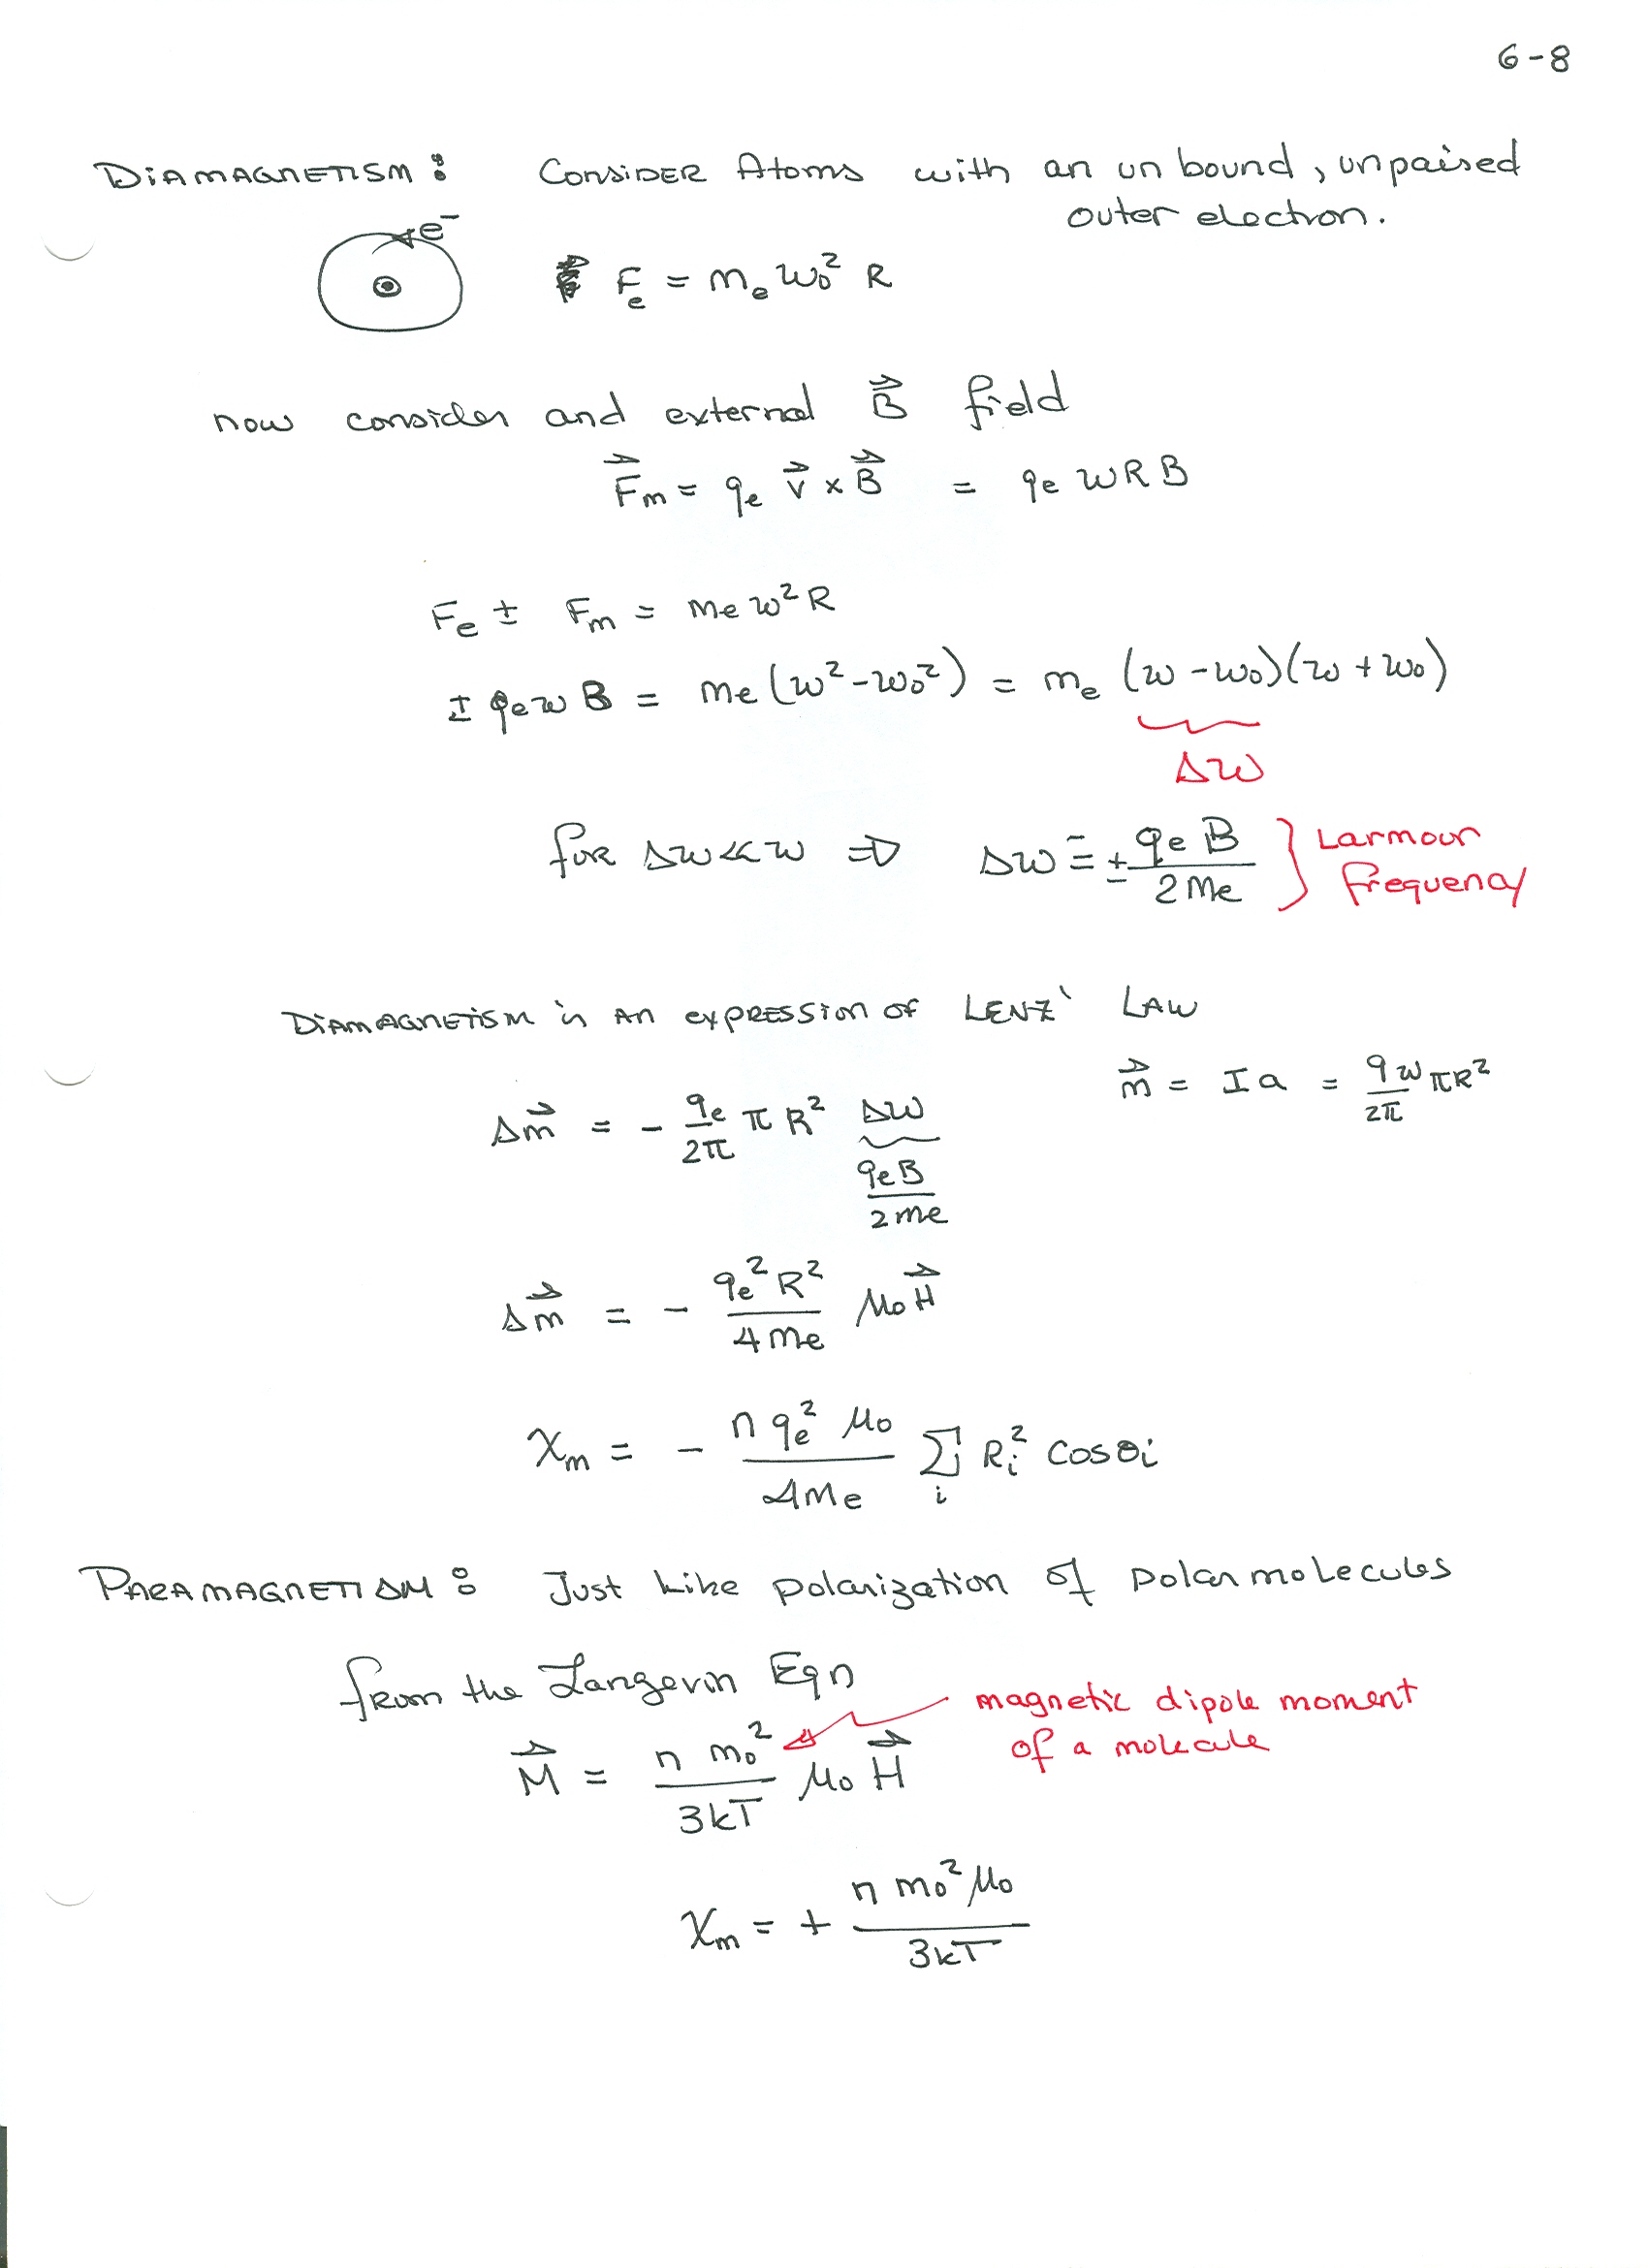 6-8
DIAMAGNETISM: CONSIDER Atoms with an unbound, unpaired
outer electron.
e⁻
F_e = m_e ω₀² R
now consider and external B⃗ field
F⃗_m = q_e v⃗ × B⃗ = q_e ωRB
F_e ± F_m = m_e ω² R
± q_e ω B = m_e (ω² - ω₀²) = m_e (ω - ω₀)(ω + ω₀)
Δω
for Δω << ω ⇒ Δω ≅ ± q_e B / 2m_e } Larmour
frequency
DIAMAGNETISM is AN EXPRESSION OF LENZ' LAW
m⃗ = Ia = qω/2π πR²
Δm⃗ = - q_e/2π π R² Δω
q_e B / 2m_e
Δm⃗ = - q_e² R² / 4m_e μ₀ H⃗
χ_m = - n q_e² μ₀ / 4m_e Σ_i R_i² cos θ_i
PARAMAGNETISM: Just Like polarization of polar molecules
from the Langevin Eqn
magnetic dipole moment
of a molecule
M⃗ = n m₀² / 3kT μ₀ H⃗
χ_m = + n m₀² μ₀ / 3kT